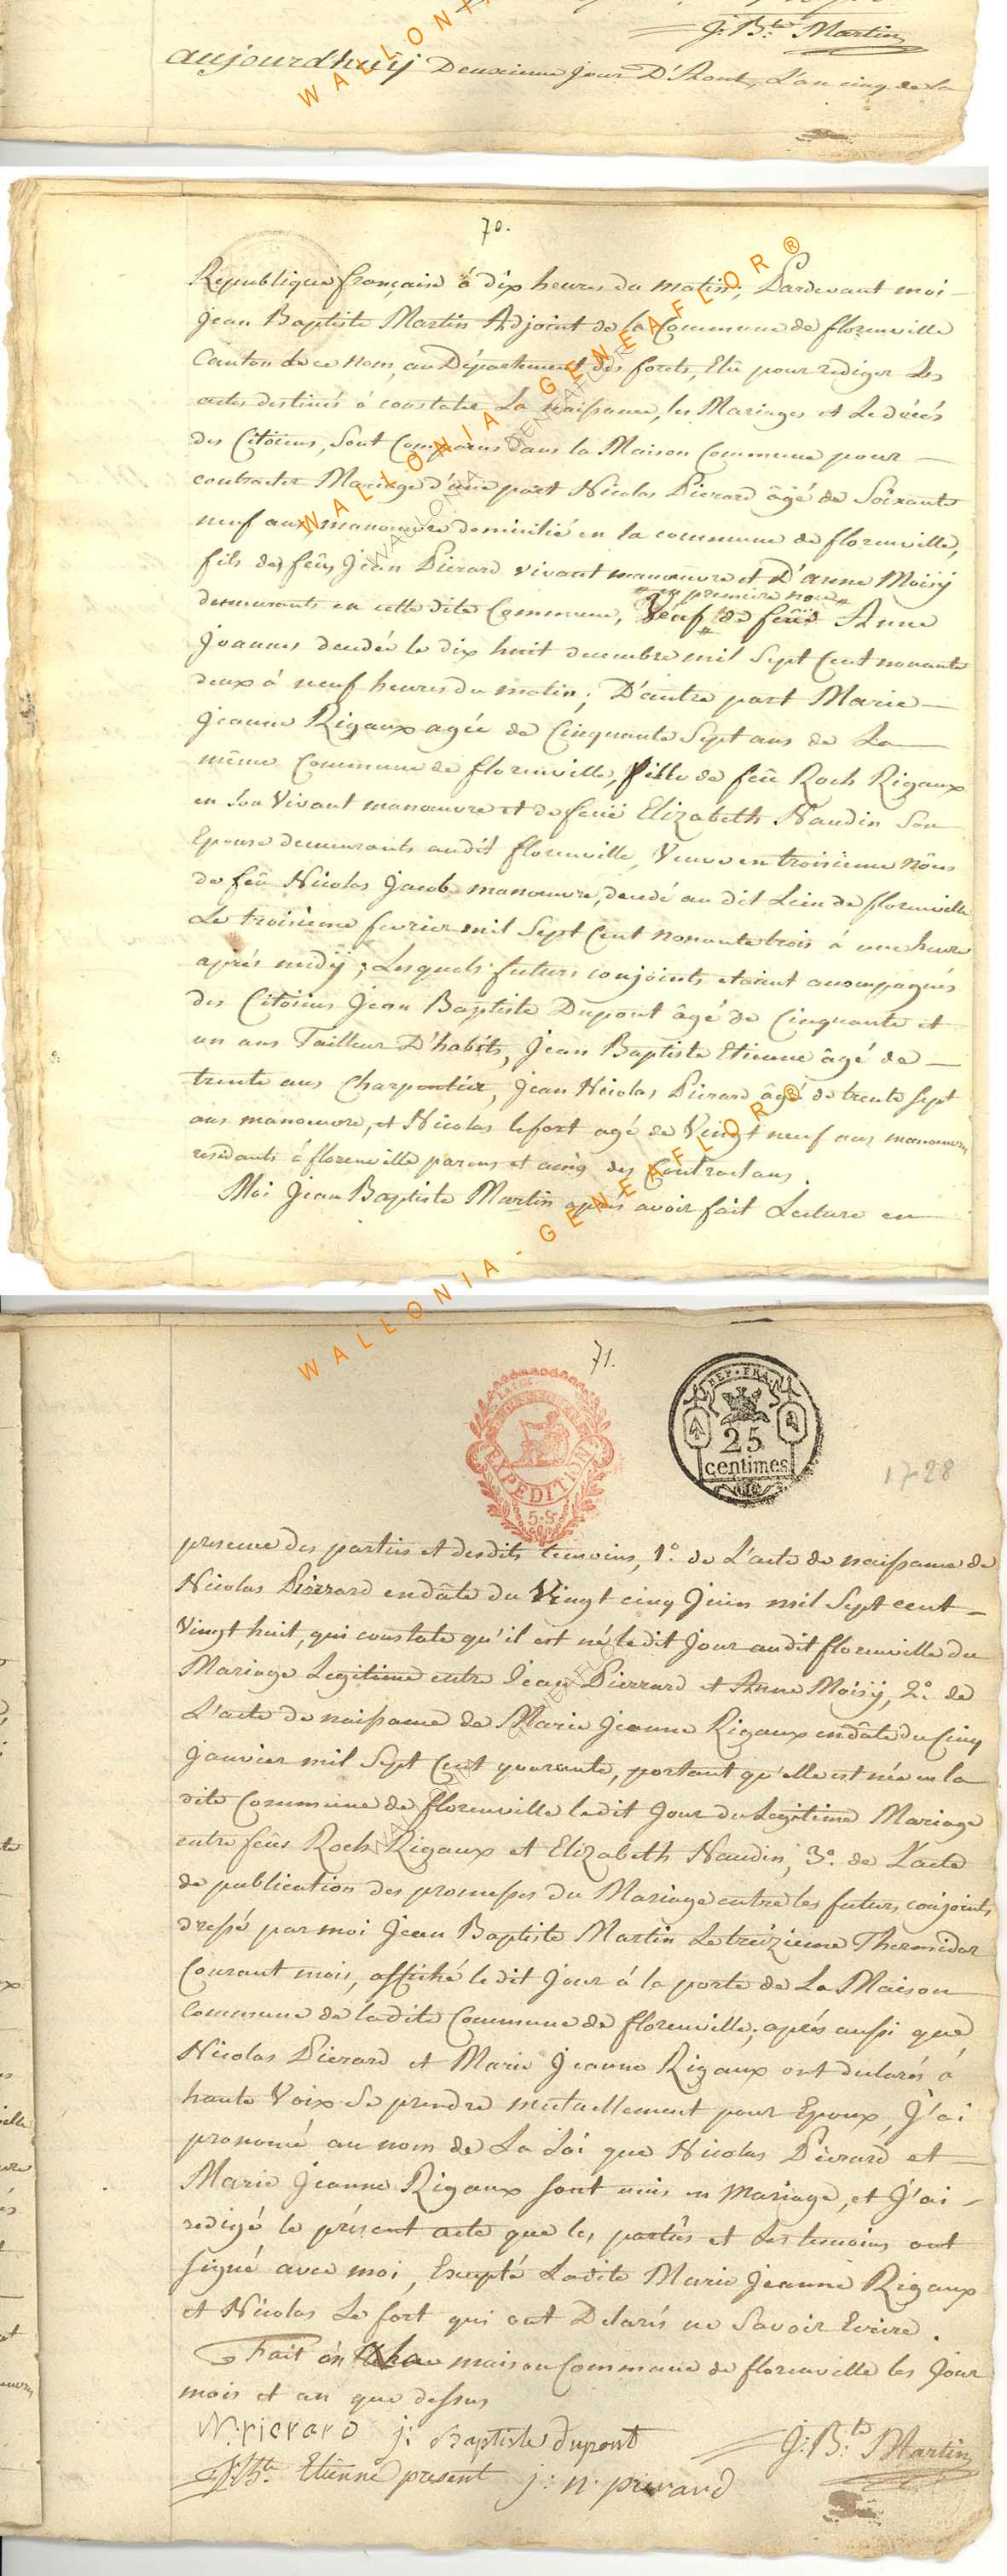 J: B:te Martin
aujourdhuÿ Deuxieme jour D'Aout, L'an cinq de la
70.
Republique française à dix heures du matin; Pardevant moi
Jean Baptiste Martin Adjoint de la Commune de florenville
Canton de ce Nom, au Département des forets, Elû pour rediger Les
actes destinés à constater La naissance, les Mariages et Le décès
des Citoiens, Sont Comparus dans la Maison Commune pour
contracter Mariage d'une part Nicolas Pierard âgé de Soixante
neuf ans manoeuvre domicilié en la commune de florenville,
fils de feûs Jean Pierard vivant manoeuvre et D'anne Moisÿ
en premiere noce
demeurants en cette dite Commune, Veuf de feüe Anne
Joannes decedée le dix huit decembre mil Sept Cent nonante
deux à neuf heures du matin; D'autre part Marie
Jeanne Rigaux agée de Cinquante Sept ans de La
même Commune de florenville, fille de feû Roch Rigaux
en Son Vivant manoeuvre et de feüe Elizabeth Naudin Son
Epouse demeurants audit florenville, Veuve en troisieme nôces
de feû Nicolas Jacob manoeuvre, decedé au dit Lieu de florenville
Le troisième fevrier mil Sept Cent nonante trois à une heure
après midÿ; Lesquels futurs conjoints etoient accompagnés
des Citoiens Jean Baptiste Dupont âgé de Cinquante et
un ans Tailleur D'habits, Jean Baptiste Etienne âgé de
trente ans Charpentier, Jean Nicolas Pierard âgé de trente Sept
ans manoeuvre, et Nicolas lefort agé de Vingt neuf ans manoeuvre
residants à florenville parens et amis des Contractans.
Moi Jean Baptiste Martin après avoir fait Lecture en
71.
REP. FRA.
25
centimes
EXPEDITION
5.S.
1728
presence des parties et desdits temoins, 1°. de L'acte de naissance de
Nicolas Pierrard en dâte du Vingt cinq Juin mil Sept cent
Vingt huit, qui constate qu'il est né ledit Jour audit florenville du
Mariage Legitime entre Jean Pierrard et Anne Moisÿ, 2°. de
L'acte de naissance de Marie Jeanne Rigaux en dâte du Cinq
Janvier mil Sept Cent quarante, portant qu'elle est née en la
dite Commune de florenville ledit Jour du Legitime Mariage
entre feûs Roch Rigaux et Elizabeth Naudin, 3°. de L'acte
de publication des promesses du Mariage entre les futurs conjoints
dressé par moi Jean Baptiste Martin Le treizieme Thermidor
Courant mois, affiché ledit Jour à la porte de La Maison
Commune de ladite Commune de florenville; après aussi que
Nicolas Pierard et Marie Jeanne Rigaux ont declarés à
haute Voix Se prendre mutuellement pour Epoux, J'ai
prononcé au nom de La Loi que Nicolas Pierard et
Marie Jeanne Rigaux sont unis en Mariage, et J'ai
redigé le présent acte que les parties et Les temoins ont
Signé avec moi, Excepté Ladite Marie Jeanne Rigaux
et Nicolas Le fort qui ont Delarés ne Savoir Ecrire.
Fait en la maison Commune de florenville les Jour
mois et an que dessus
N: pierard j: Baptiste dupont J: B:te Martin
J: Bte Etienne present j: n: pierard
WALLONIA - GENEAFLOR ®
WALLONIA - GENEAFLOR ®